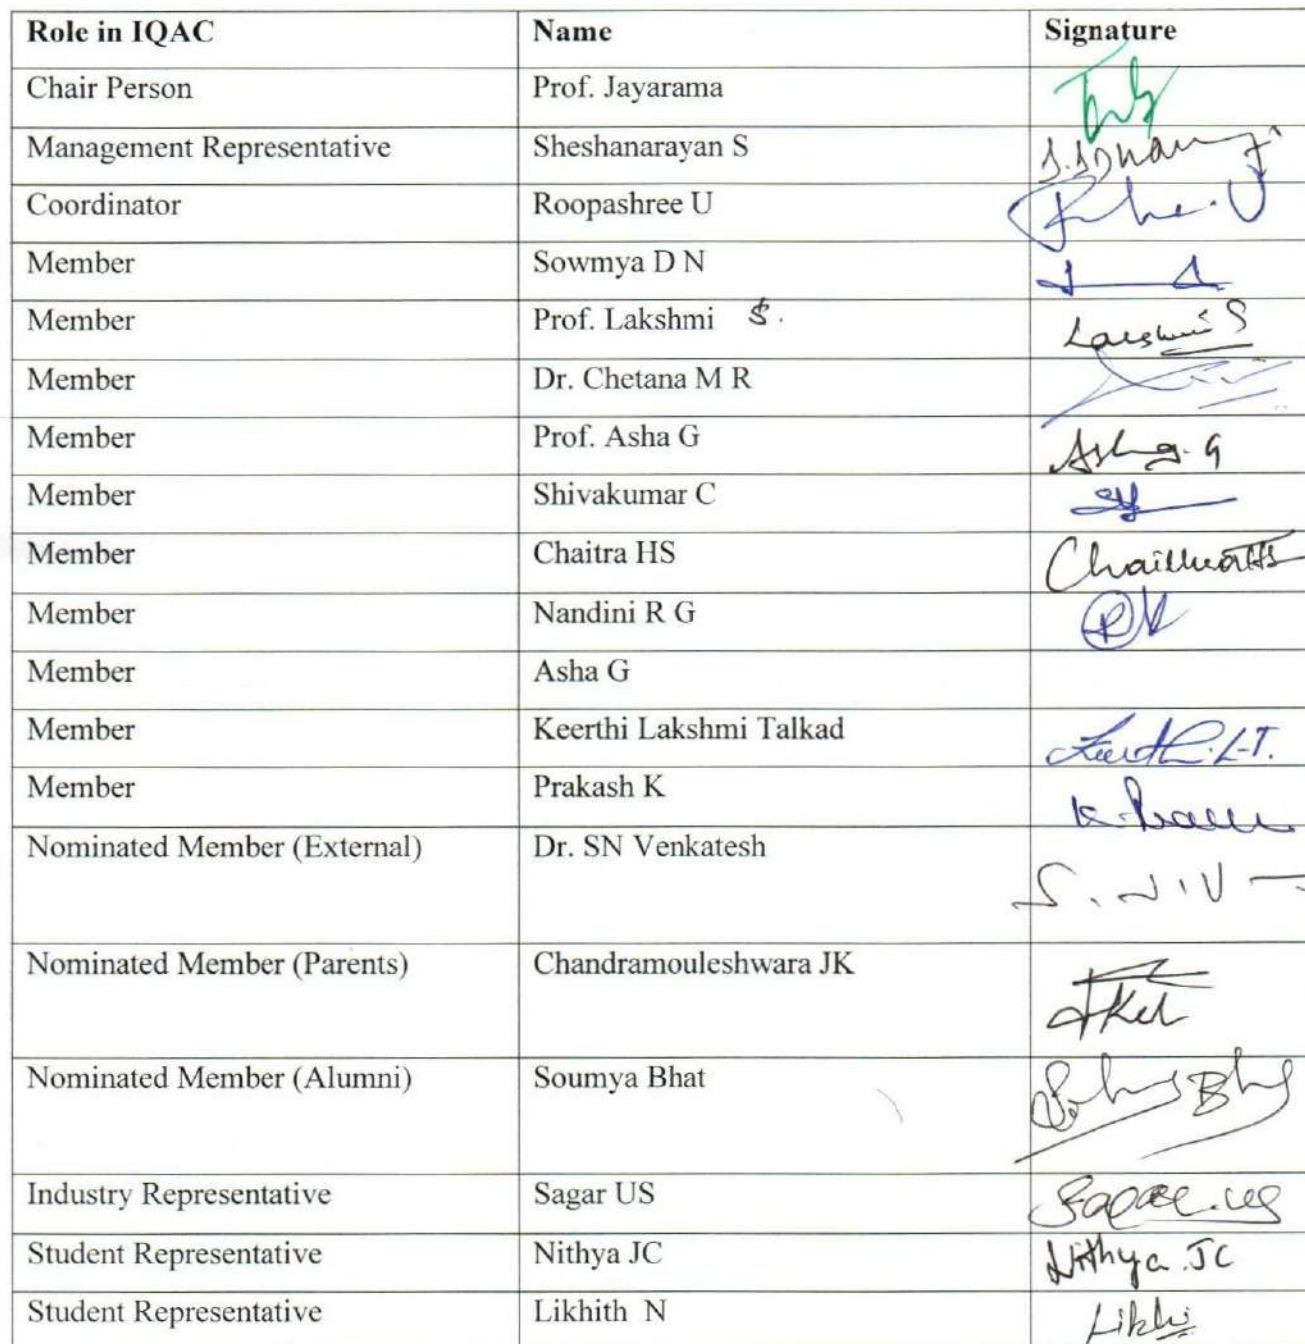 Role in IQAC Name Signature
Chair Person Prof. Jayarama
Management Representative Sheshanarayan S
Coordinator Roopashree U
Member Sowmya D N
Member Prof. Lakshmi S. Lakshmi S
Member Dr. Chetana M R
Member Prof. Asha G Asha. G
Member Shivakumar C
Member Chaitra HS Chaithra HS
Member Nandini R G
Member Asha G
Member Keerthi Lakshmi Talkad Keerthi. L.T.
Member Prakash K
Nominated Member (External) Dr. SN Venkatesh S. N. V
Nominated Member (Parents) Chandramouleshwara JK
Nominated Member (Alumni) Soumya Bhat
Industry Representative Sagar US Sagar. US
Student Representative Nithya JC Nithya. JC
Student Representative Likhith N Likhi